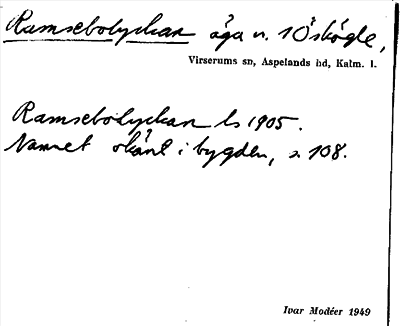 Ramsebolyckan åga n. 1 Öskögle,
Virserums sn, Aspelands hd, Kalm. l.
Ramsebolyckan ls 1905.
Namnet okänt i bygden, s. 108.
Ivar Modéer 1949